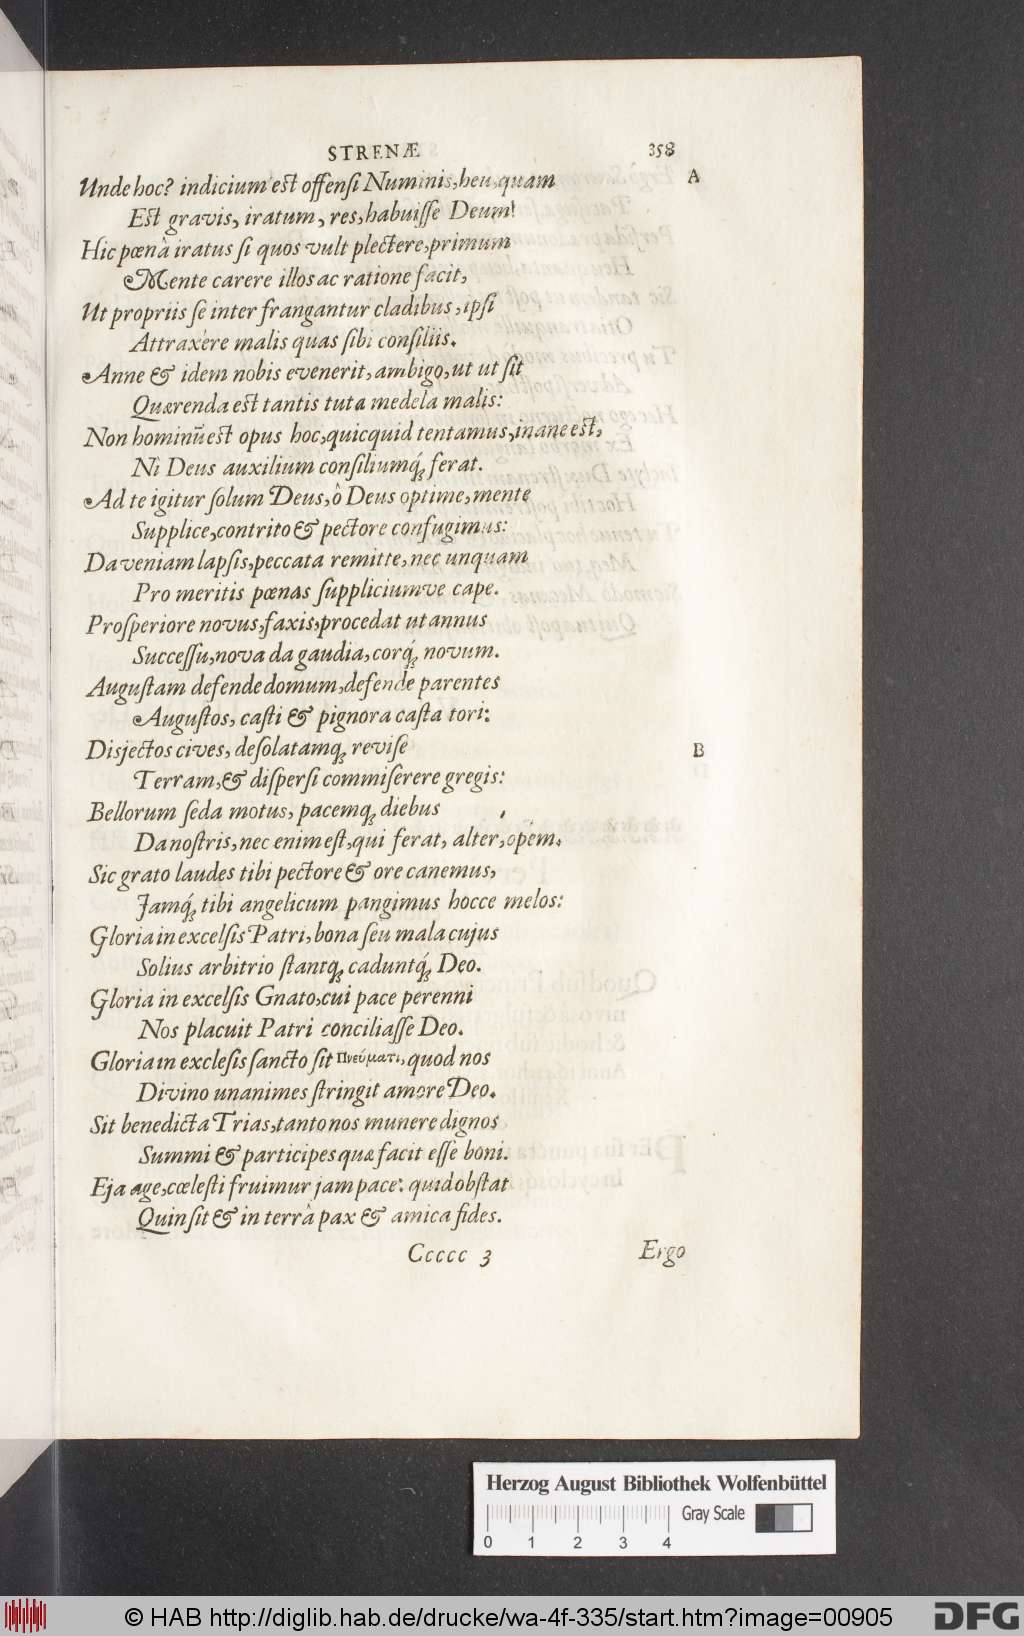 STRENÆ 358
Unde hoc? indicium est offensi Numinis, heu, quam A
Est gravis, iratum, res, habuisse Deum!
Hic pœnâ iratus si quos vult plectere, primum
Mente carere illos ac ratione facit,
Ut propriis se inter frangantur cladibus, ipsi
Attraxère malis quas sibi consiliis.
Anne & idem nobis evenerit, ambigo, ut ut sit
Quærenda est tantis tuta medela malis:
Non hominũ est opus hoc, quicquid tentamus, inane est,
Ni Deus auxilium consiliumq́; ferat.
Ad te igitur solum Deus, ô Deus optime, mente
Supplice, contrito & pectore confugimus:
Da veniam lapsis, peccata remitte, nec unquam
Pro meritis pœnas suppliciumve cape.
Prosperiore novus, faxis, procedat ut annus
Successu, nova da gaudia, corq́; novum.
Augustam defende domum, defende parentes
Augustos, casti & pignora casta tori:
Disjectos cives, desolatamq; revise B
Terram, & dispersi commiserere gregis:
Bellorum seda motus, pacemq; diebus
Da nostris, nec enim est, qui ferat, alter, opem.
Sic grato laudes tibi pectore & ore canemus,
Jamq́; tibi angelicum pangimus hocce melos:
Gloria in excelsis Patri, bona seu mala cujus
Solius arbitrio stantq; caduntq́; Deo.
Gloria in excelsis Gnato, cui pace perenni
Nos placuit Patri conciliasse Deo.
Gloria in exclesis sancto sit Πνεύματι, quod nos
Divino unanimes stringit amore Deo.
Sit benedicta Trias, tanto nos munere dignos
Summi & participes quæ facit esse boni.
Eja age, cœlesti fruimur jam pace: quid obstat
Quin sit & in terrâ pax & amica fides.
Ccccc 3 Ergo
Herzog August Bibliothek Wolfenbüttel
Gray Scale
0 1 2 3 4
© HAB http://diglib.hab.de/drucke/wa-4f-335/start.htm?image=00905
DFG